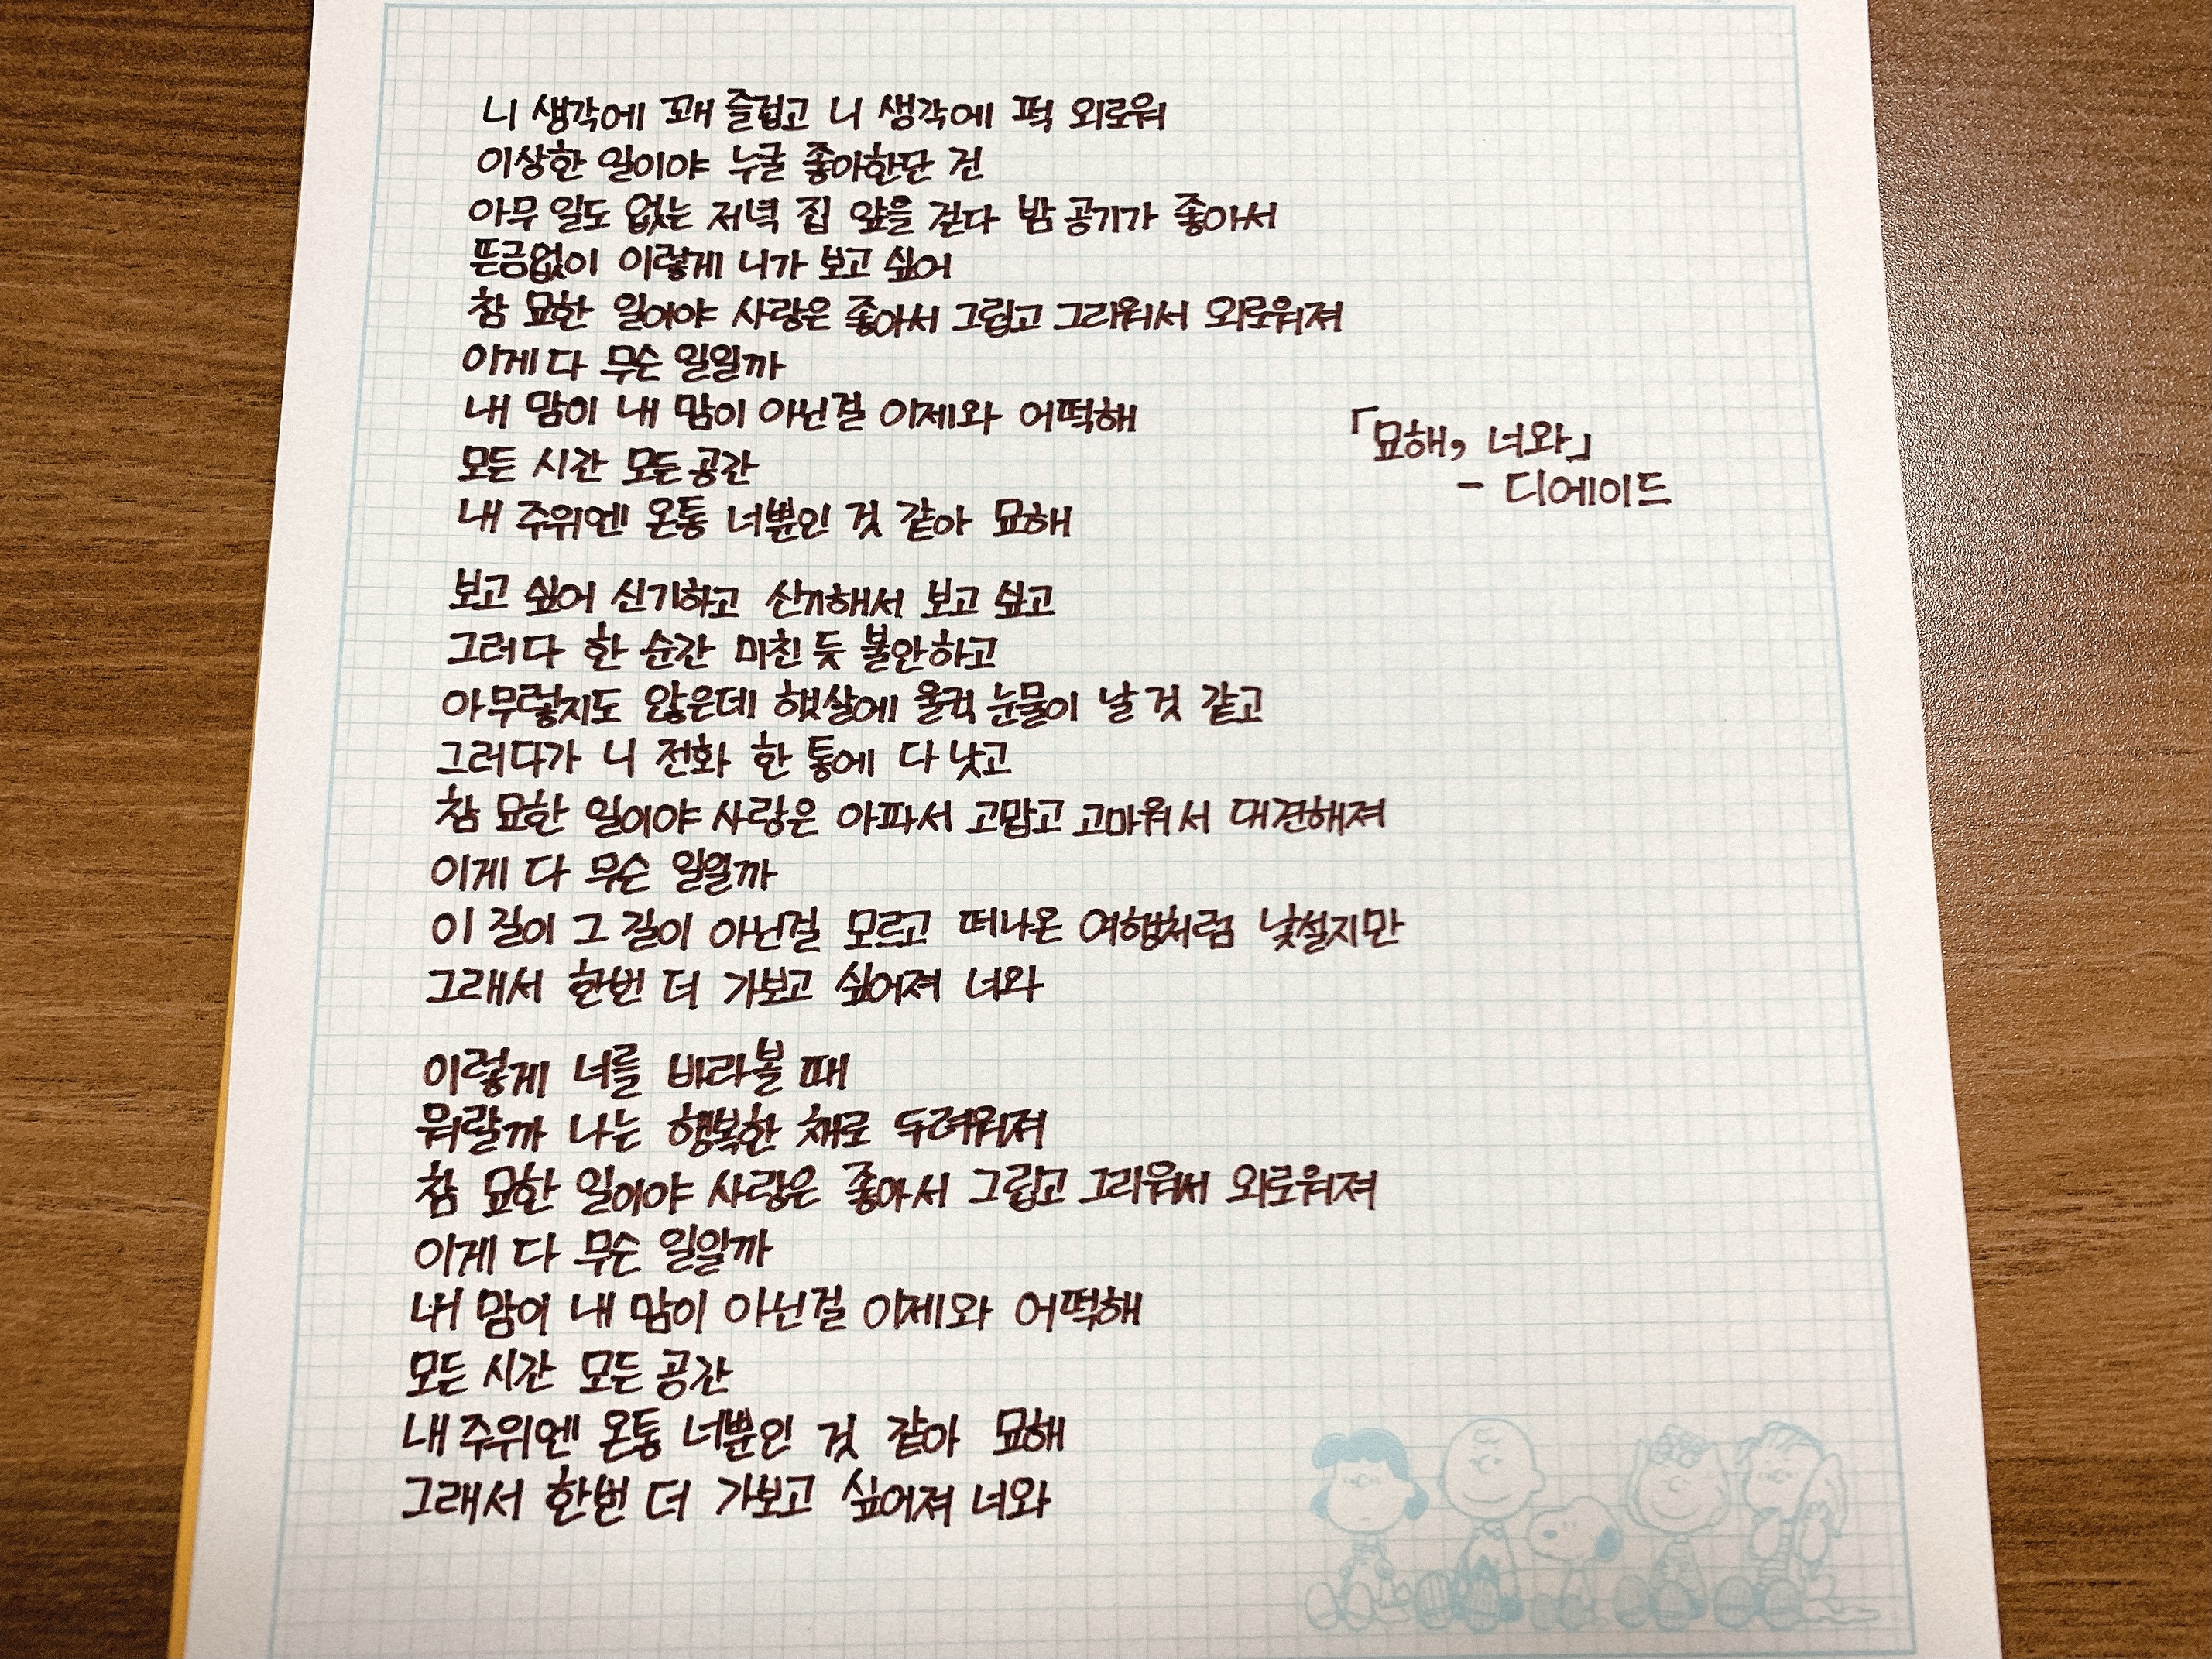 니 생각에 꽤 즐겁고 니 생각에 퍽 외로워
이상한 일이야 누굴 좋아한단 건
아무 일도 없는 저녁 집 앞을 걷다 밤 공기가 좋아서
뜬금없이 이렇게 니가 보고 싶어
참 묘한 일이야 사랑은 좋아서 그립고 그리워서 외로워져
이게 다 무슨 일일까
내 맘이 내 맘이 아닌걸 이제와 어떡해
모든 시간 모든 공간
내 주위엔 온통 너뿐인 것 같아 묘해
「묘해, 너와」
- 디에이드
보고 싶어 신기하고 신기해서 보고 싶고
그러다 한 순간 미친 듯 불안하고
아무렇지도 않은데 햇살에 울컥 눈물이 날 것 같고
그러다가 니 전화 한 통에 다 낫고
참 묘한 일이야 사랑은 아파서 고맙고 고마워서 대견해져
이게 다 무슨 일일까
이 길이 그 길이 아닌걸 모르고 떠나온 여행처럼 낯설지만
그래서 한번 더 가보고 싶어져 너와
이렇게 너를 바라볼 때
뭐랄까 나는 행복한 채로 두려워져
참 묘한 일이야 사랑은 좋아서 그립고 그리워서 외로워져
이게 다 무슨 일일까
내 맘이 내 맘이 아닌걸 이제와 어떡해
모든 시간 모든 공간
내 주위엔 온통 너뿐인 것 같아 묘해
그래서 한번 더 가보고 싶어져 너와